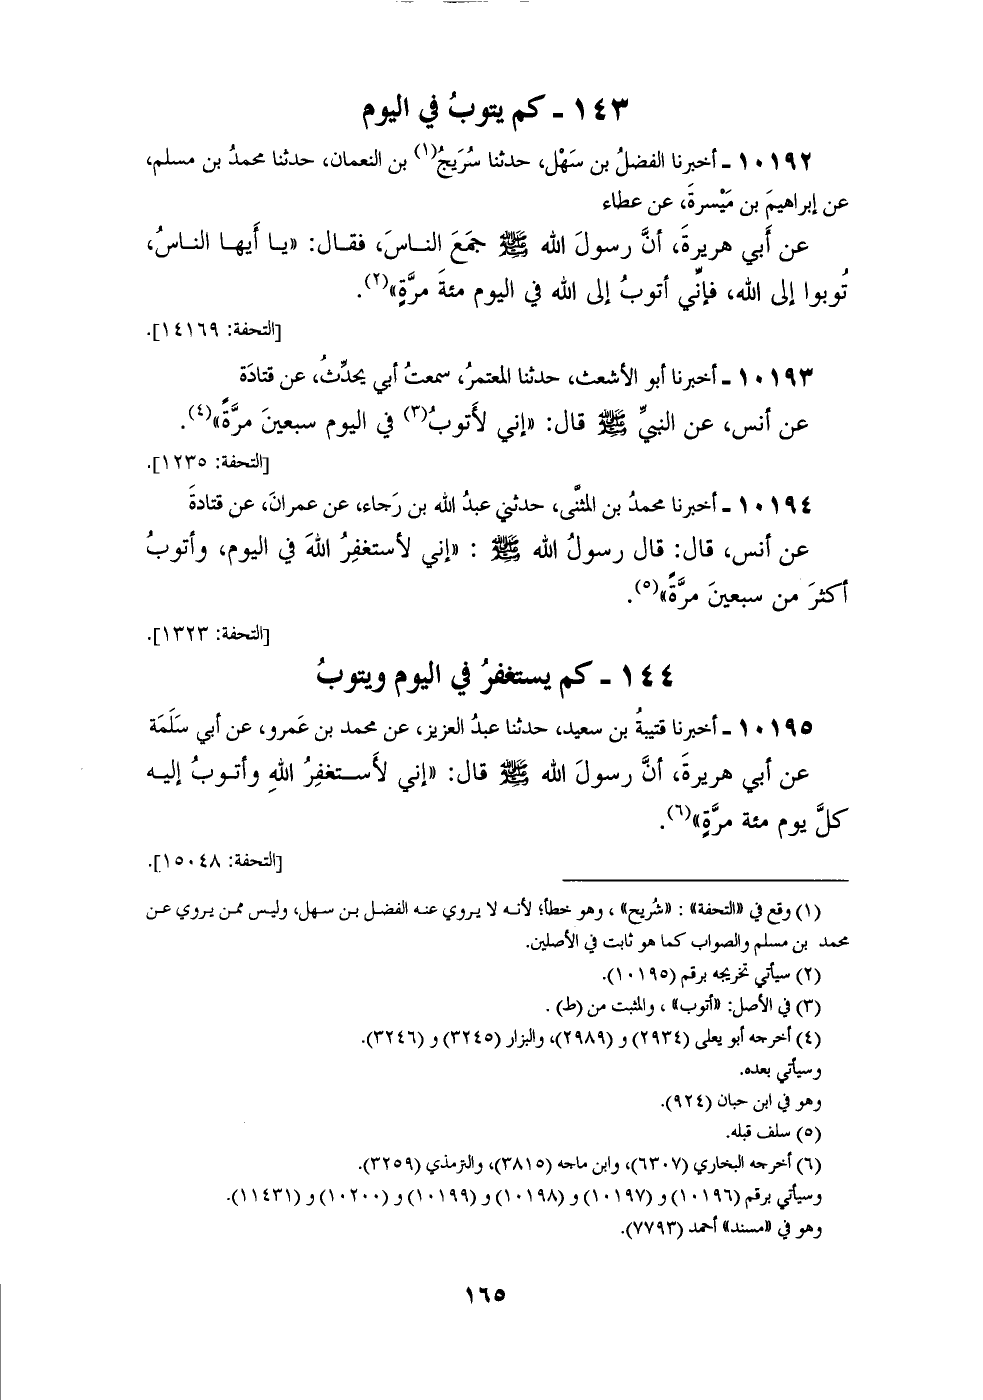 ١٤٣ ـ كم يتوبُ في اليوم
١٠١٩٢ ـ أخبرنا الفضلُ بن سَهْل، حدثنا سُرَيجُ(١) بن النعمان، حدثنا محمدُ بن مسلم،
عن إبراهيمَ بن مَيْسرةَ، عن عطاء
عن أَبي هريرةَ، أنَّ رسولَ الله ﷺ جَمَعَ الناسَ، فقال: «يا أَيها الناسُ،
تُوبوا إلى الله، فإنِّي أتوبُ إلى الله في اليوم مئةَ مرَّةٍ»(٢).
[التحفة: ١٤١٦٩].
١٠١٩٣ ـ أخبرنا أبو الأشعث، حدثنا المعتمرُ، سمعتُ أبي يحدِّثُ، عن قتادَة
عن أنس، عن النبيِّ ﷺ قال: «إني لأتوبُ(٣) في اليوم سبعينَ مرَّةً»(٤).
[التحفة: ١٢٣٥].
١٠١٩٤ ـ أخبرنا محمدُ بن المثنَّى، حدثني عبدُ الله بن رَجاء، عن عمرانَ، عن قتادةَ
عن أنس، قال: قال رسولُ الله ﷺ : «إني لأستغفِرُ اللهَ في اليوم، وأتوبُ
أكثرَ من سبعينَ مرَّةً»(٥).
[التحفة: ١٣٢٣].
١٤٤ ـ كم يستغفرُ في اليوم ويتوبُ
١٠١٩٥ ـ أخبرنا قتيبةُ بن سعيد، حدثنا عبدُ العزيز، عن محمد بن عَمرو، عن أبي سَلَمَة
عن أبي هريرةَ، أنَّ رسولَ الله ﷺ قال: «إني لأَستغفِرُ اللهِ وأتوبُ إليه
كلَّ يوم مئة مرَّةٍ»(٦).
[التحفة: ١٥٠٤٨].
(١) وقع في «التحفة» : «شُريح» ، وهو خطأ؛ لأنه لا يروي عنه الفضل بن سهل، وليس ممن يروي عن
محمد بن مسلم والصواب كما هو ثابت في الأصلين.
(٢) سيأتي تخريجه برقم (١٠١٩٥).
(٣) في الأصل: «أتوب» ، والمثبت من (ط) .
(٤) أخرجه أبو يعلى (٢٩٣٤) و (٢٩٨٩)، والبزار (٣٢٤٥) و (٣٢٤٦).
وسيأتي بعده.
وهو في ابن حبان (٩٢٤).
(٥) سلف قبله.
(٦) أخرجه البخاري (٦٣٠٧)، وابن ماجه (٣٨١٥)، والترمذي (٣٢٥٩).
وسيأتي برقم (١٠١٩٦) و (١٠١٩٧) و (١٠١٩٨) و (١٠١٩٩) و (١٠٢٠٠) و (١١٤٣١).
وهو في «مسند» أحمد (٧٧٩٣).
١٦٥